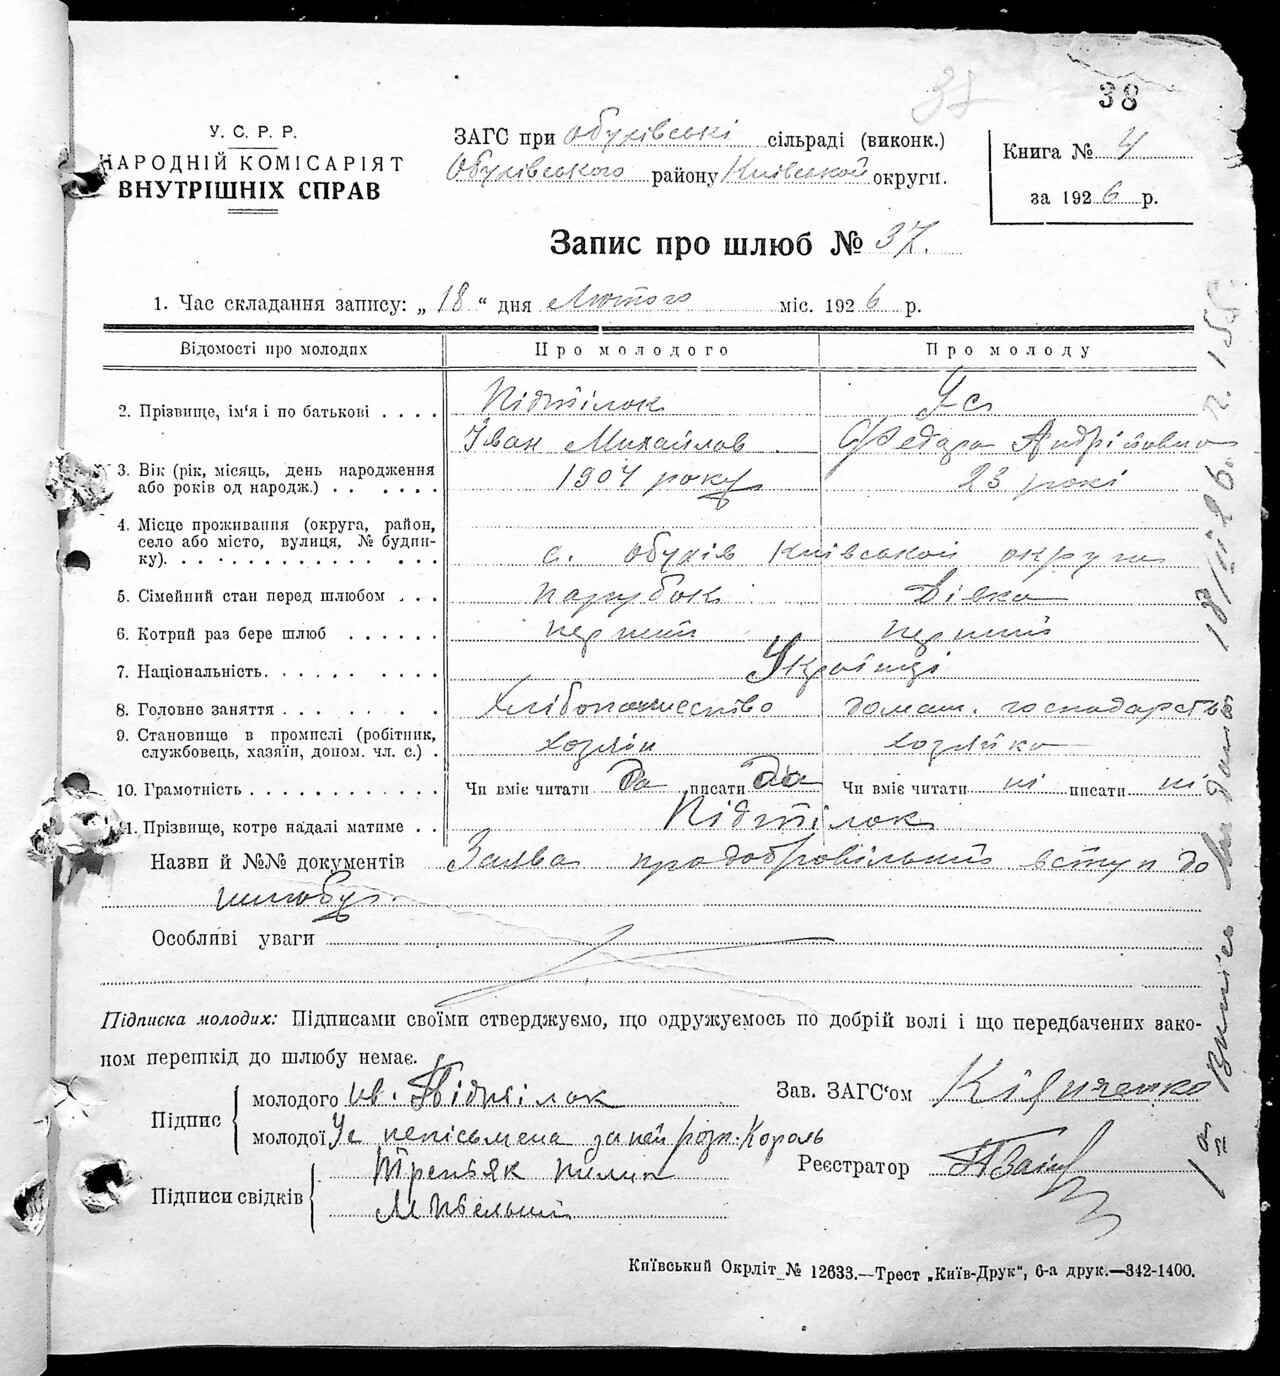 38
38
У. С. Р. Р.
НАРОДНІЙ КОМІСАРІЯТ
ВНУТРІШНІХ СПРАВ
ЗАГС при Обухівські сільраді (виконк.)
Обухівського району Київської округи.
Книга № 4
за 1926 р.
Запис про шлюб № 37.
1. Час складання запису: „ 18 “ дня Лютого міс. 1926 р.
Відомості про молодих
Про молодого
Про молоду
2. Прізвище, ім'я і по батькові . . . .
Підтілок
Ус
Іван Михайлов
Федора Андріївна
3. Вік (рік, місяць, день народження
або років од народж.) . . . . . .
1904 року
23 рокі
4. Місце проживання (округа, район,
село або місто, вулиця, № будин-
ку). . . . . . . . . . . . . . . .
с. Обухів Київської округи
5. Сімейний стан перед шлюбом . . .
парубок
Дівка
6. Котрий раз бере шлюб . . . . . .
перший
перший
7. Національність. . . . . . . . . .
Українці
8. Головне заняття . . . . . . . .
Хлібопашество
домаш. господарств
9. Становище в промислі (робітник,
службовець, хазяїн, допом. чл. с.) .
хозяїн
хозяйка
10. Грамотність . . . . . . . . . . .
Чи вміє читати да писати да
Чи вміє читати ні писати ні
11. Прізвище, котре надалі матиме . .
Підтілок
Назви й №№ документів Заява про добровільний вступ до
шлюбу.
Особливі уваги
Підписка молодих: Підписами своїми стверджуємо, що одружуємось по добрій волі і що передбачених зако-
ном перешкід до шлюбу немає.
Підпис
молодого Ів. Підтілок
молодої Ус неписьмена за неї розп. Король
Зав. ЗАГС'ом
Реєстратор
Підписи свідків
Третяк
Київський Окрліт № 12633.—Трест „Київ-Друк“, 6-а друк.—342-1400.
18/II 26 р.